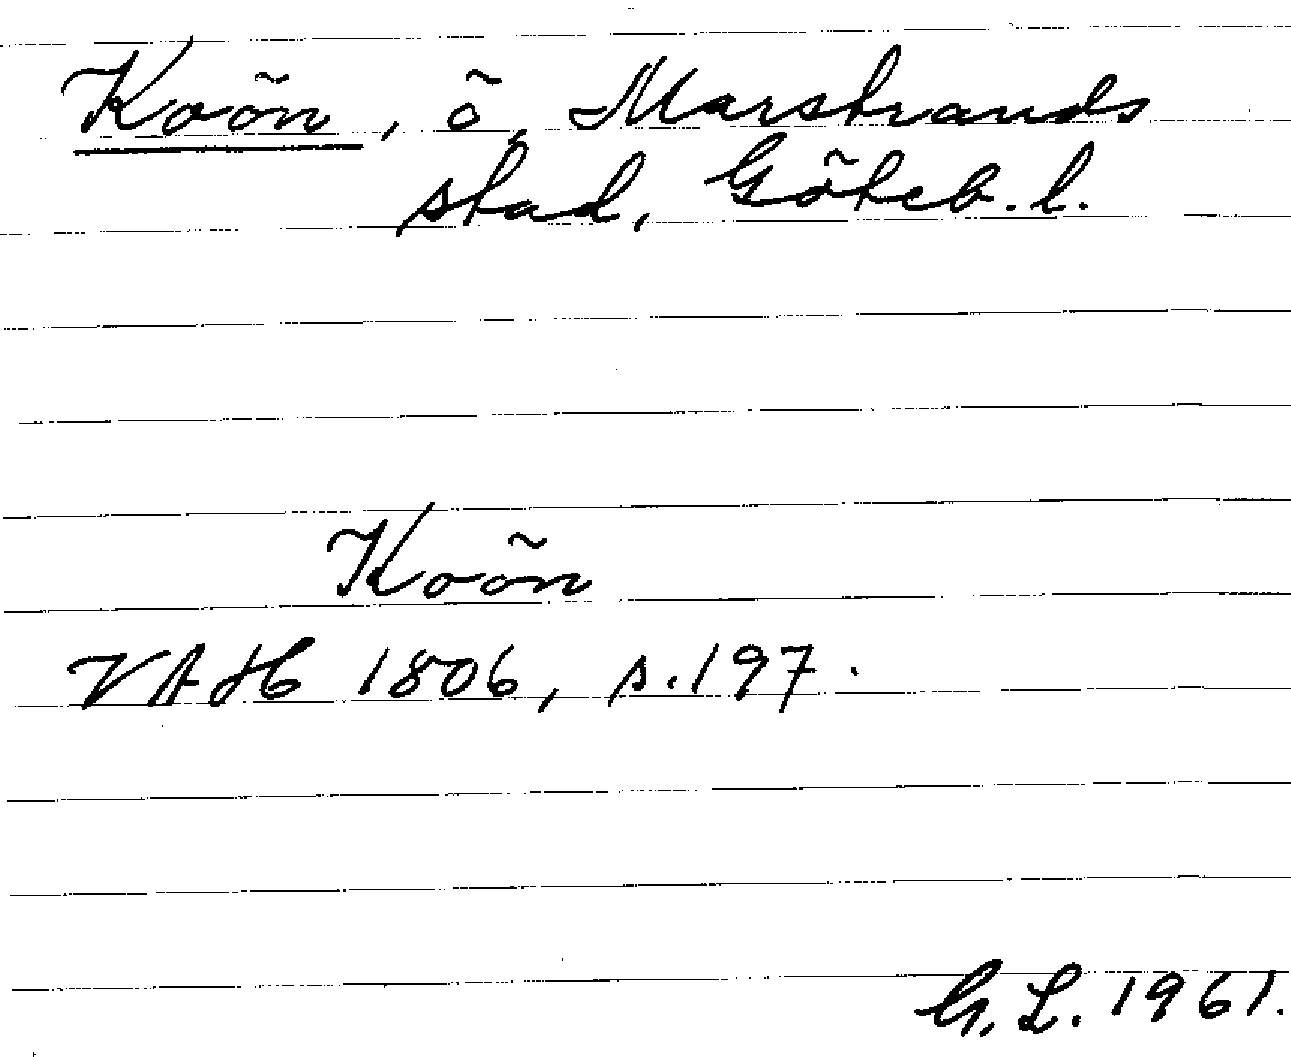 Koön, ö, Marstrands
stad, Göteb. l.
Koön
VAH 1806, s. 197.
G. L. 1961.